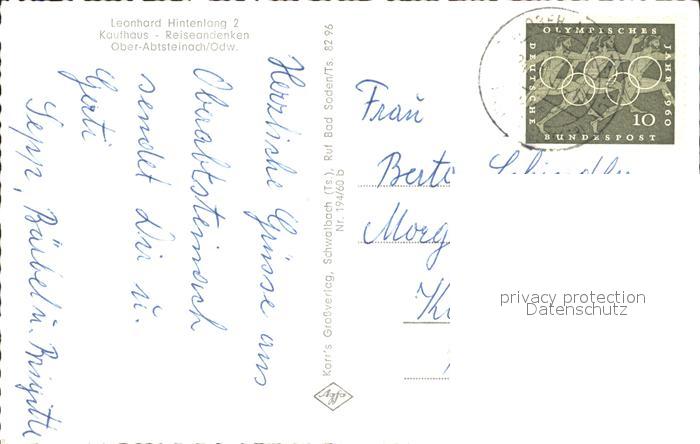 Leonhard Hintenlang 2
Kaufhaus - Reiseandenken
Ober-Abtsteinach/Odw.
Herzliche Grüsse aus
Oberabtsteinach
sendet Dir u.
Gerti
Sepp, Bärbel u. Brigitte
Karr's Großverlag, Schwalbach (Ts.), Ruf Bad Soden/Ts. 82 96
Nr. 194/60 b
Agfa
OLYMPISCHES
JAHR 1960
DEUTSCHE
BUNDESPOST
10
Frau
privacy protection
Datenschutz